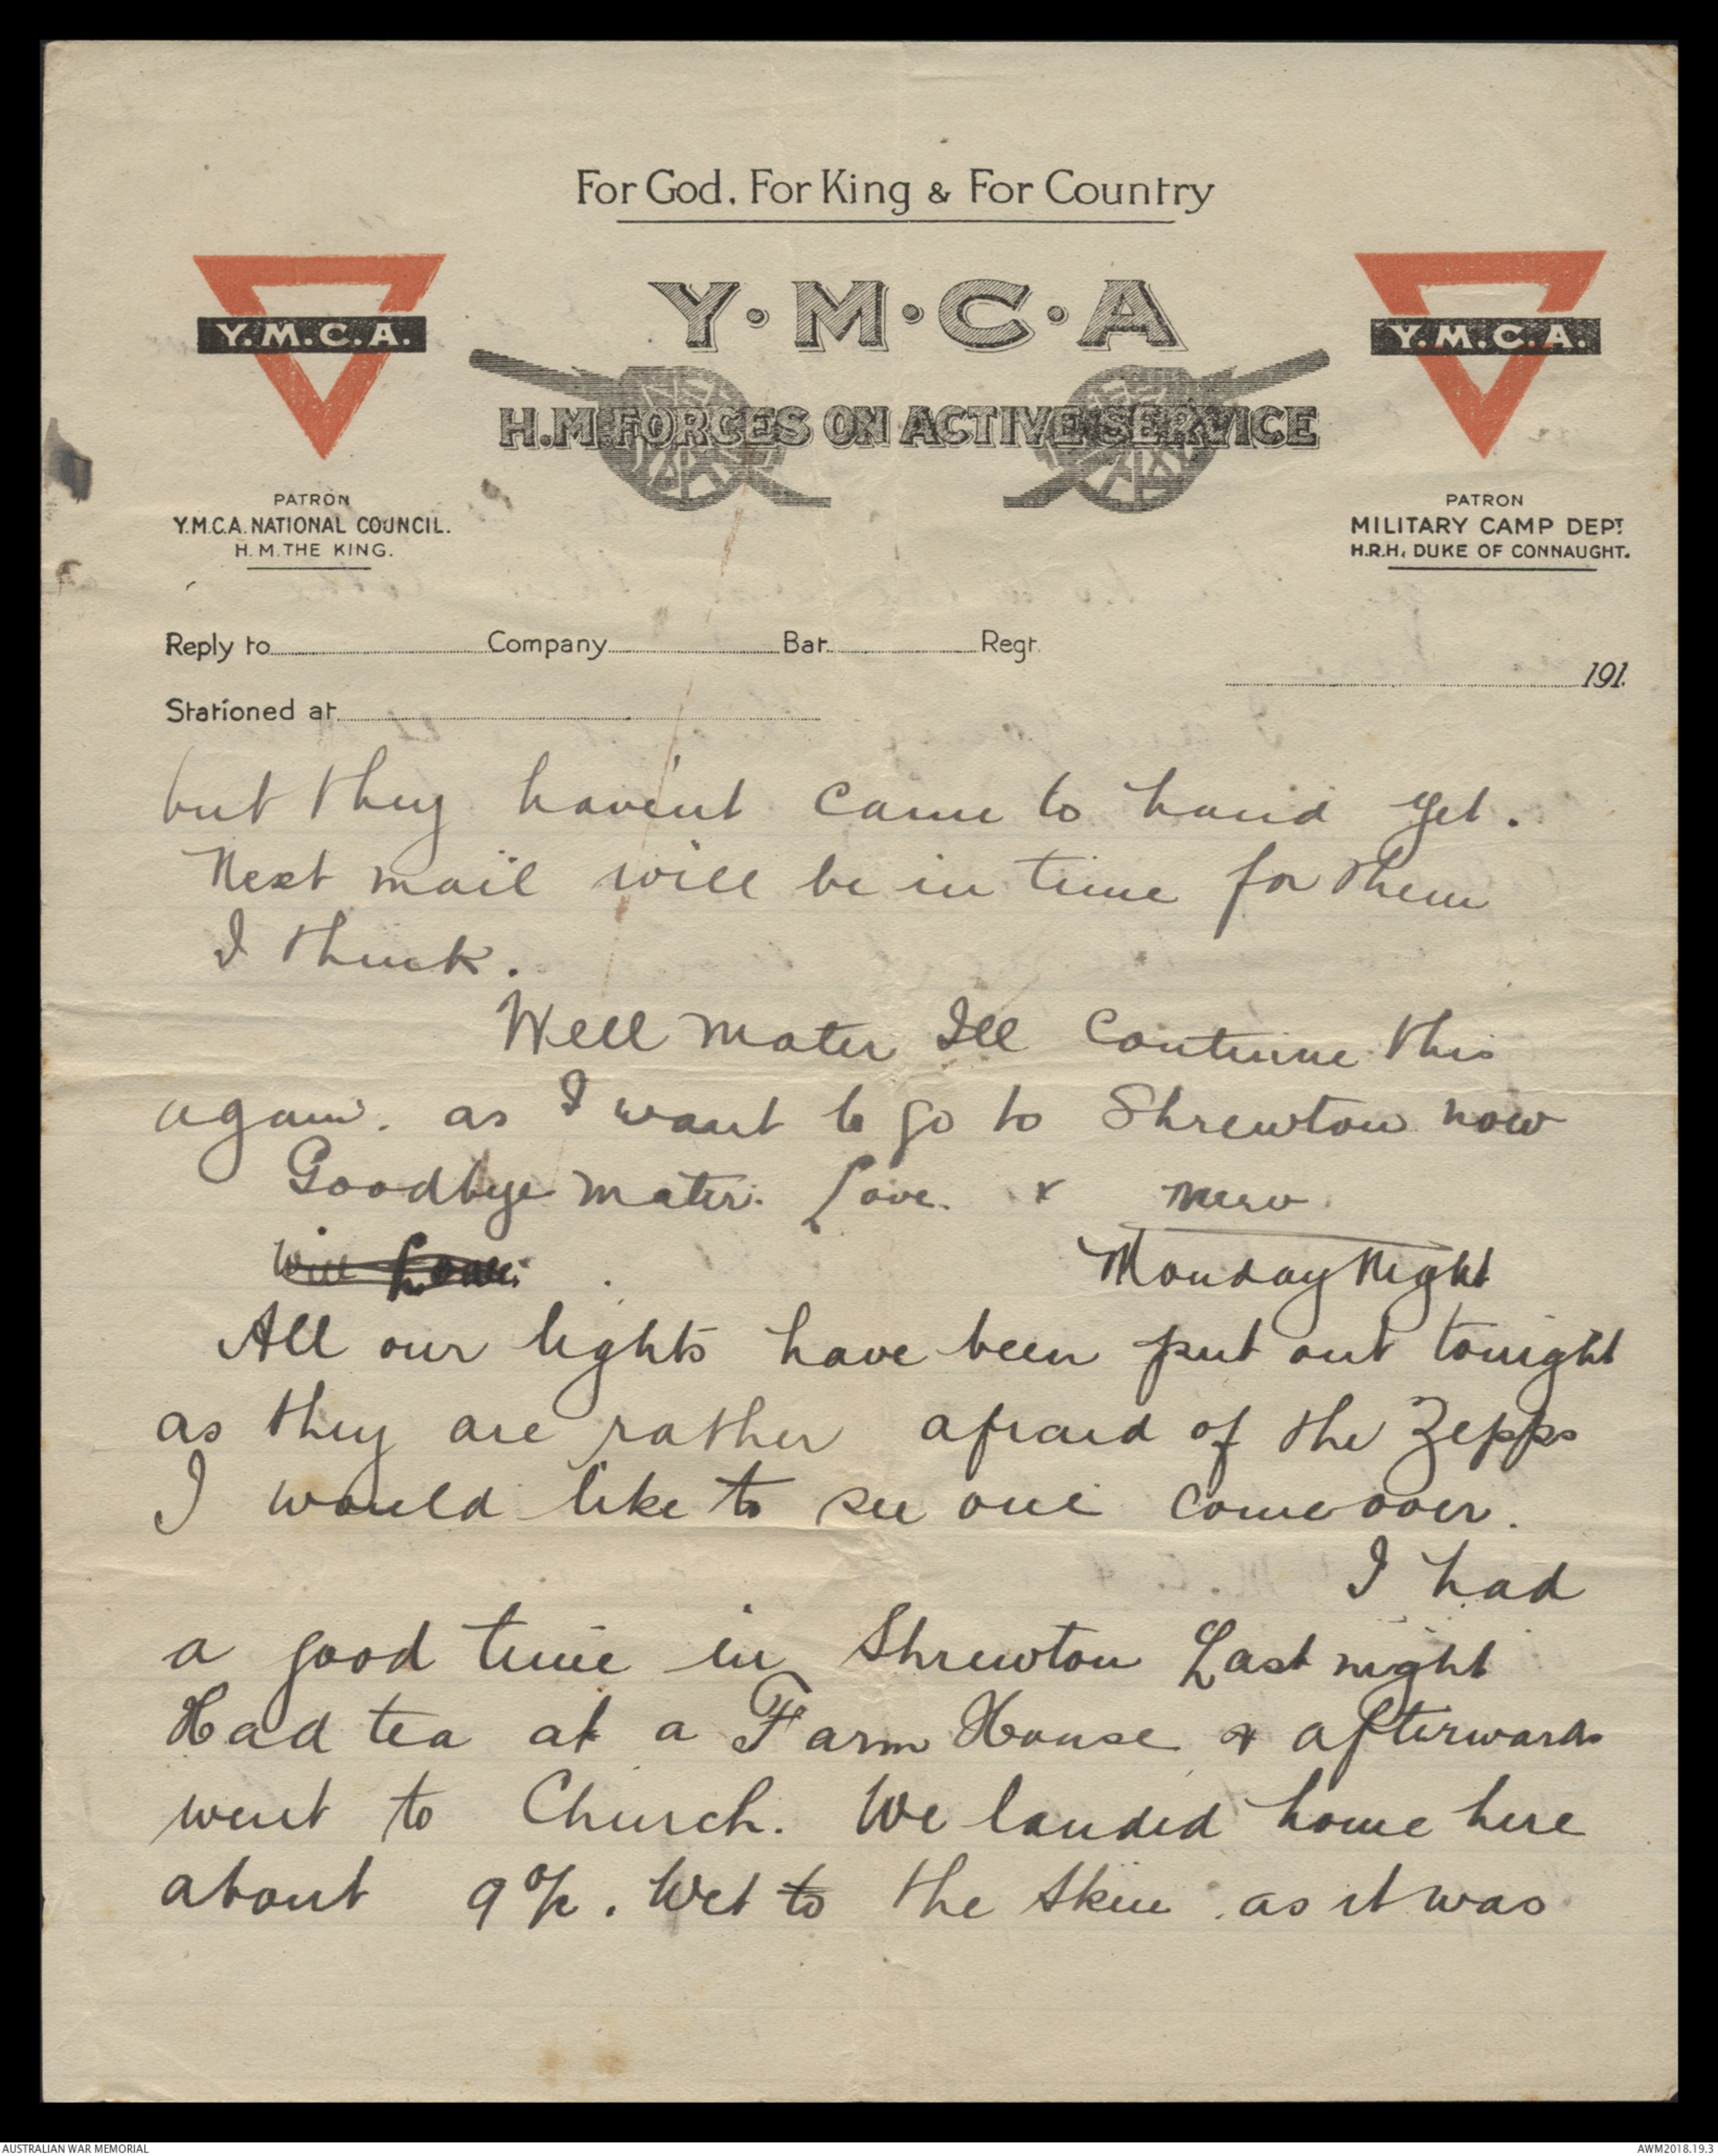 For God, For King & For Country
Y·M·C·A
H.M. FORCES ON ACTIVE SERVICE
Y.M.C.A.
Y.M.C.A.
PATRON
Y.M.C.A. NATIONAL COUNCIL.
H.M. THE KING.
PATRON
MILITARY CAMP DEPT.
H.R.H. DUKE OF CONNAUGHT.
Reply to Company Bat. Regt.
191
Stationed at
but they haven't came to hand yet.
Next mail will be in time for them
I think.
Well mater Ill continue this
again. as I want to go to Shrewton now
Goodbye mater. Love. x Merv
Will Love.
Monday Night
All our lights have been put out tonight
as they are rather afraid of the Zepps
I would like to see one come over.
I had
a good time in Shrewton Last night
Had tea at a Farm House & afterwards
went to Church. We landed home here
about 9 o/c. Wet to the skin as it was
AUSTRALIAN WAR MEMORIAL
AWM2018.19.3